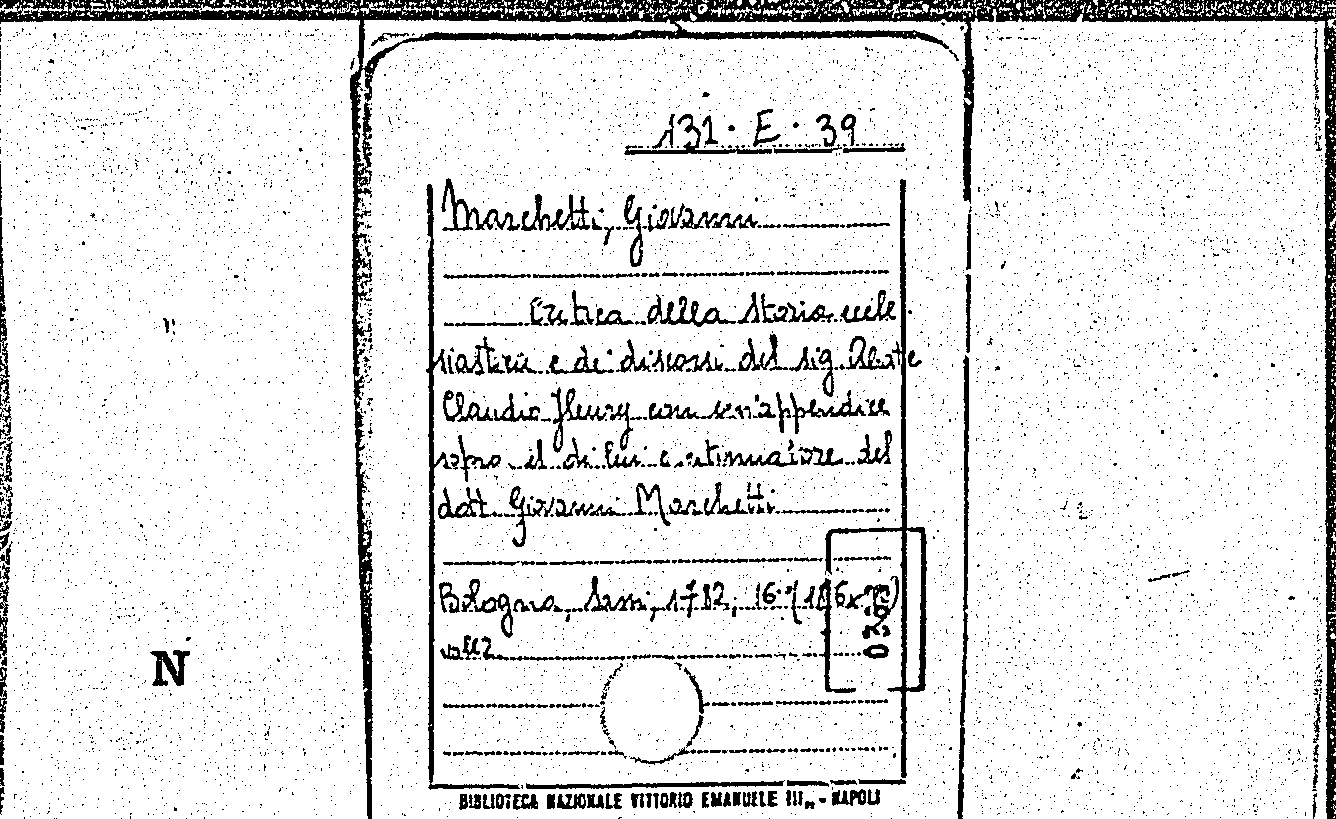 131 · E · 39
Marchetti, Giovanni
Critica della storia eccle
siastica e de' discorsi del sig. Abate
Claudio Fleury con un'appendice
sopra il di lui continuatore del
dott Giovanni Marchetti
Bologna, Sassi, 1782, 16°
voll 2
N
BIBLIOTECA NAZIONALE VITTORIO EMANUELE III - NAPOLI